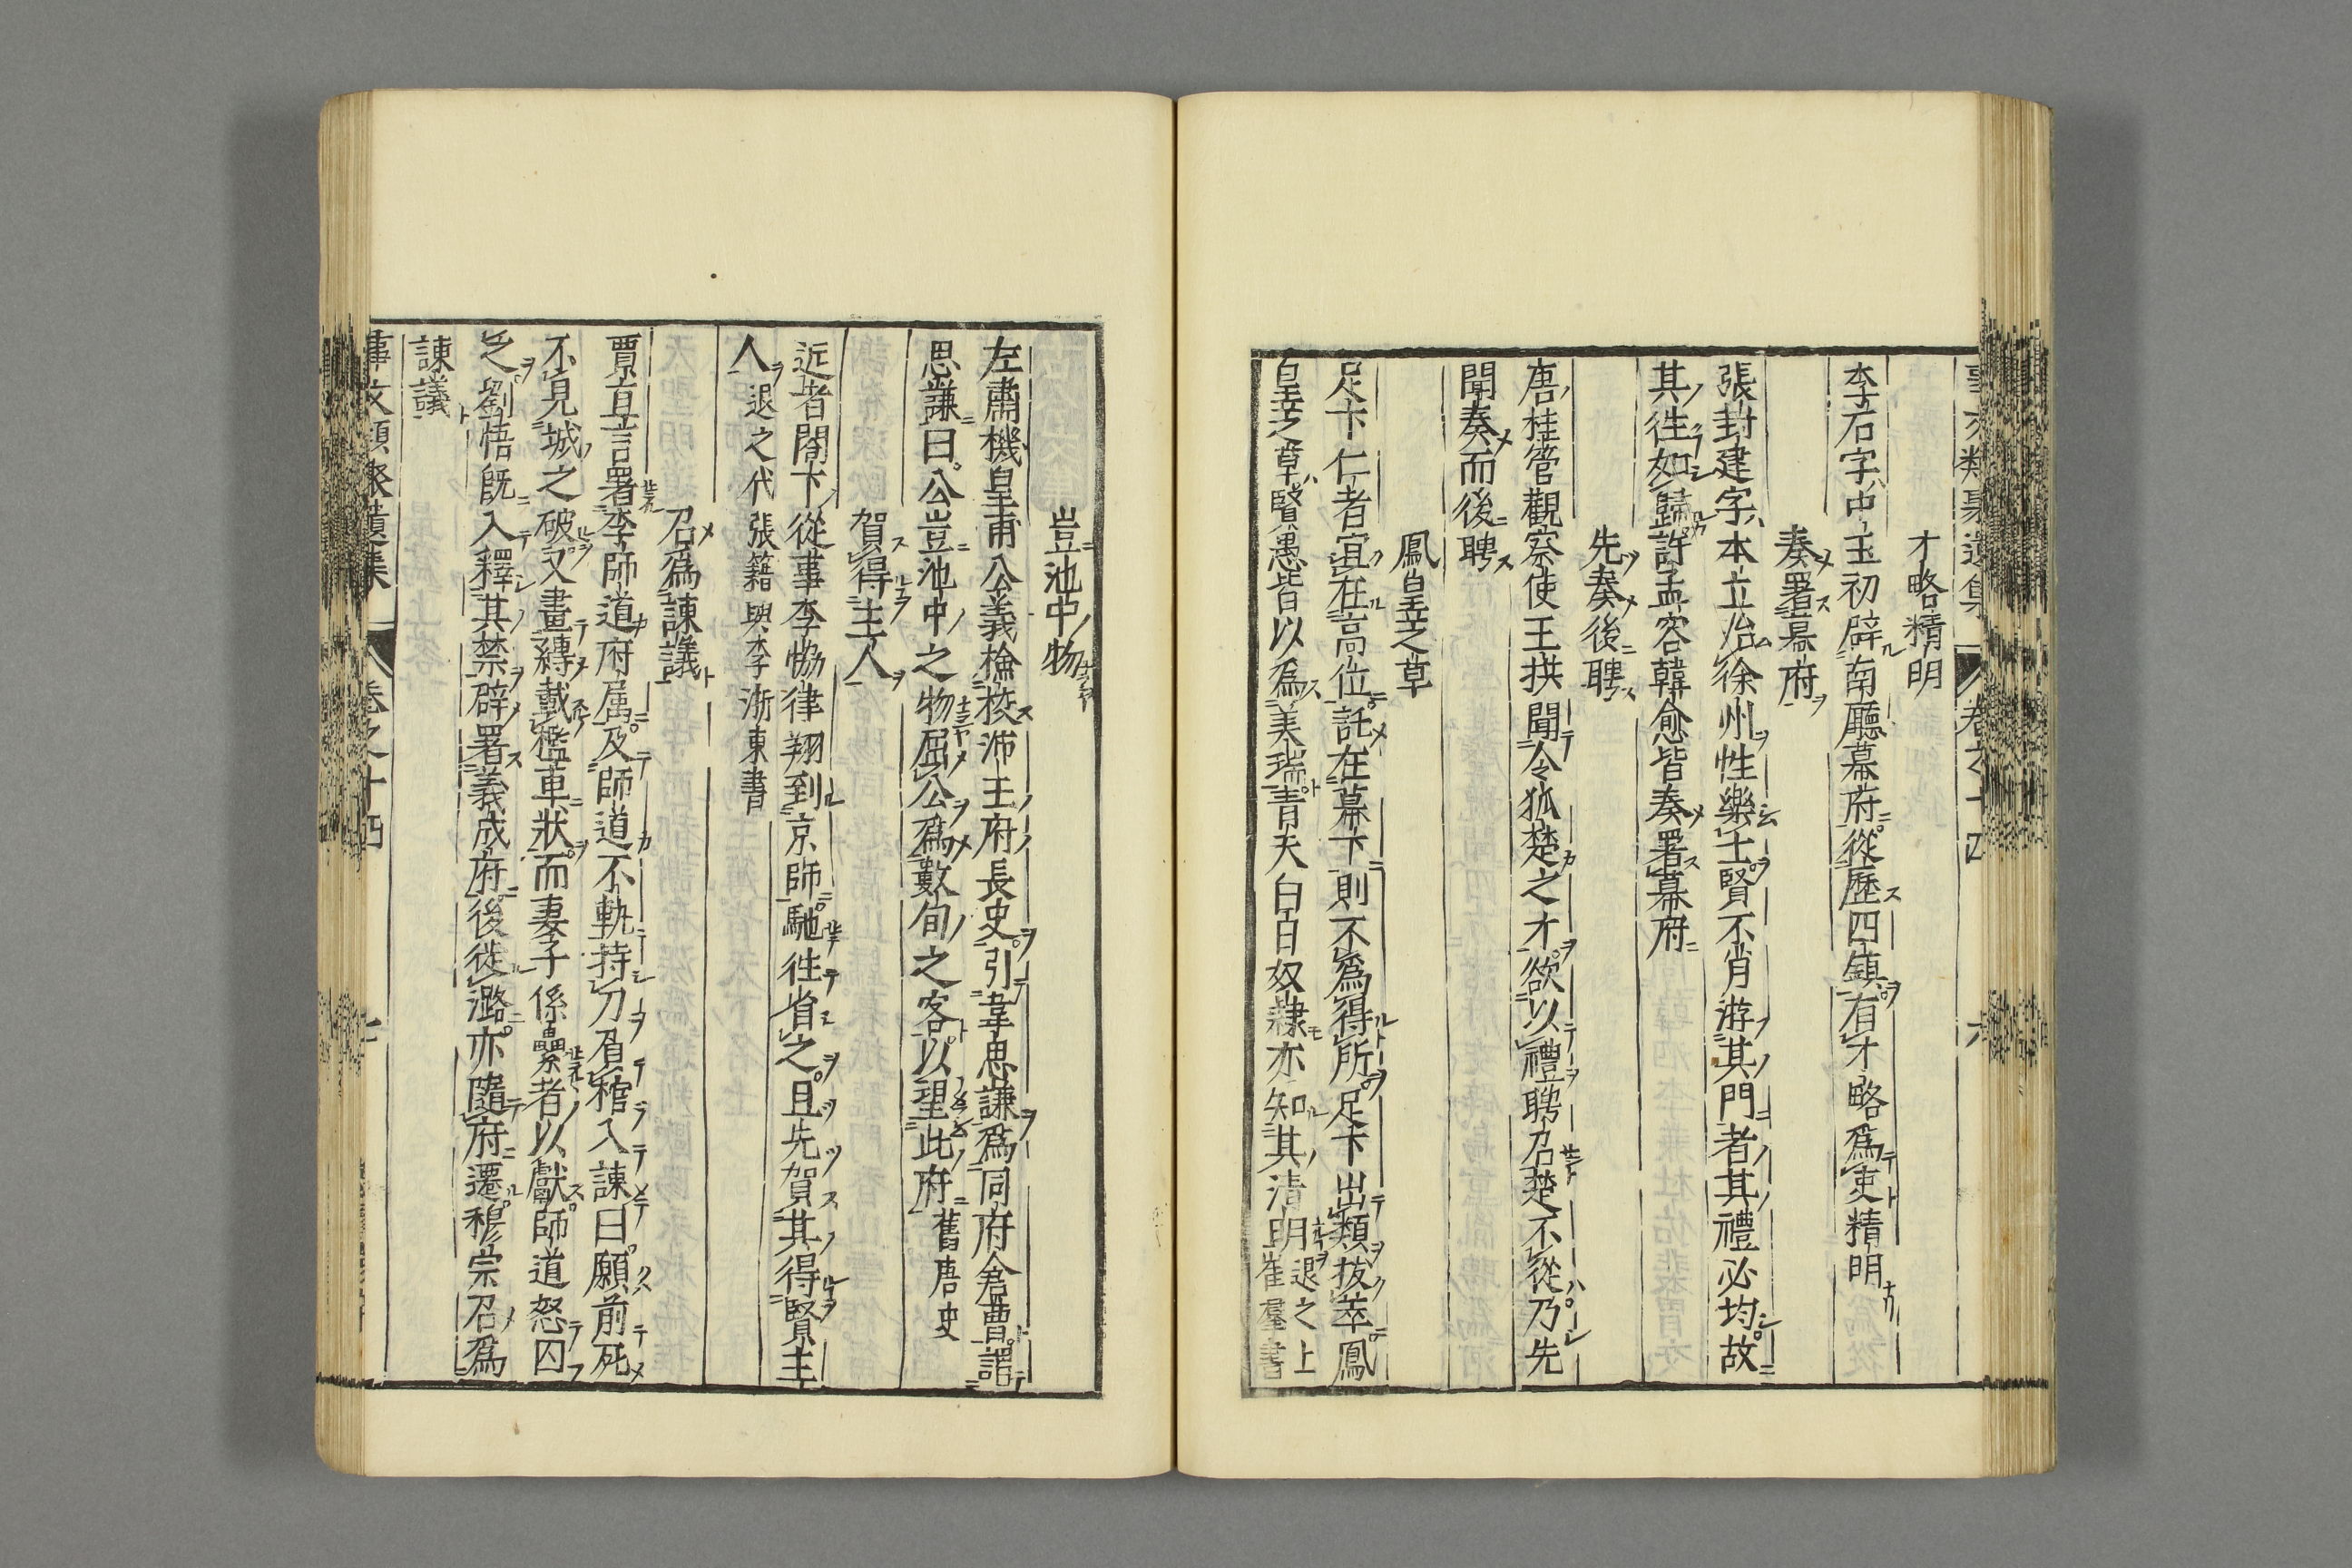 事文類聚遺集 卷之十四 六
才略精明
李石字中玉初辟南廳幕府從歷四鎮有才略為吏精明
奏署幕府
張封建字本立治徐州性樂士賢不肖游其門者其禮必均故
其往如歸許孟容韓愈皆奏署幕府
先奏後聘
唐桂管觀察使王拱聞令狐楚之才欲以禮聘召楚不從乃先
聞奏而後聘
鳳皇之草
足下仁者宜在高位託在幕下則不為得所足下出類拔萃鳳
皇芝草賢愚皆以為美瑞青天白日奴隸亦知其清明退之上崔羣書
豈池中物
左肅機皇甫公義檢校沛王府長史引韋思謙為同府倉曹謂
思謙曰公豈池中之物屈公為數旬之客以望此府舊唐史
賀得主人
近者閣下從事李恊律翔到京師馳往省之且先賀其得賢主
人退之代張籍與李浙東書
召為諫議
賈直言署李師道府属及師道不軌持刀負棺入諫曰願前死
不見城之破又畫縛載檻車狀而妻子係纍者以獻師道怒囚
之劉悟既入釋其禁辟署義成府後徙潞亦隨府遷穆宗召為
諫議
事文類聚遺集 卷之十四 七